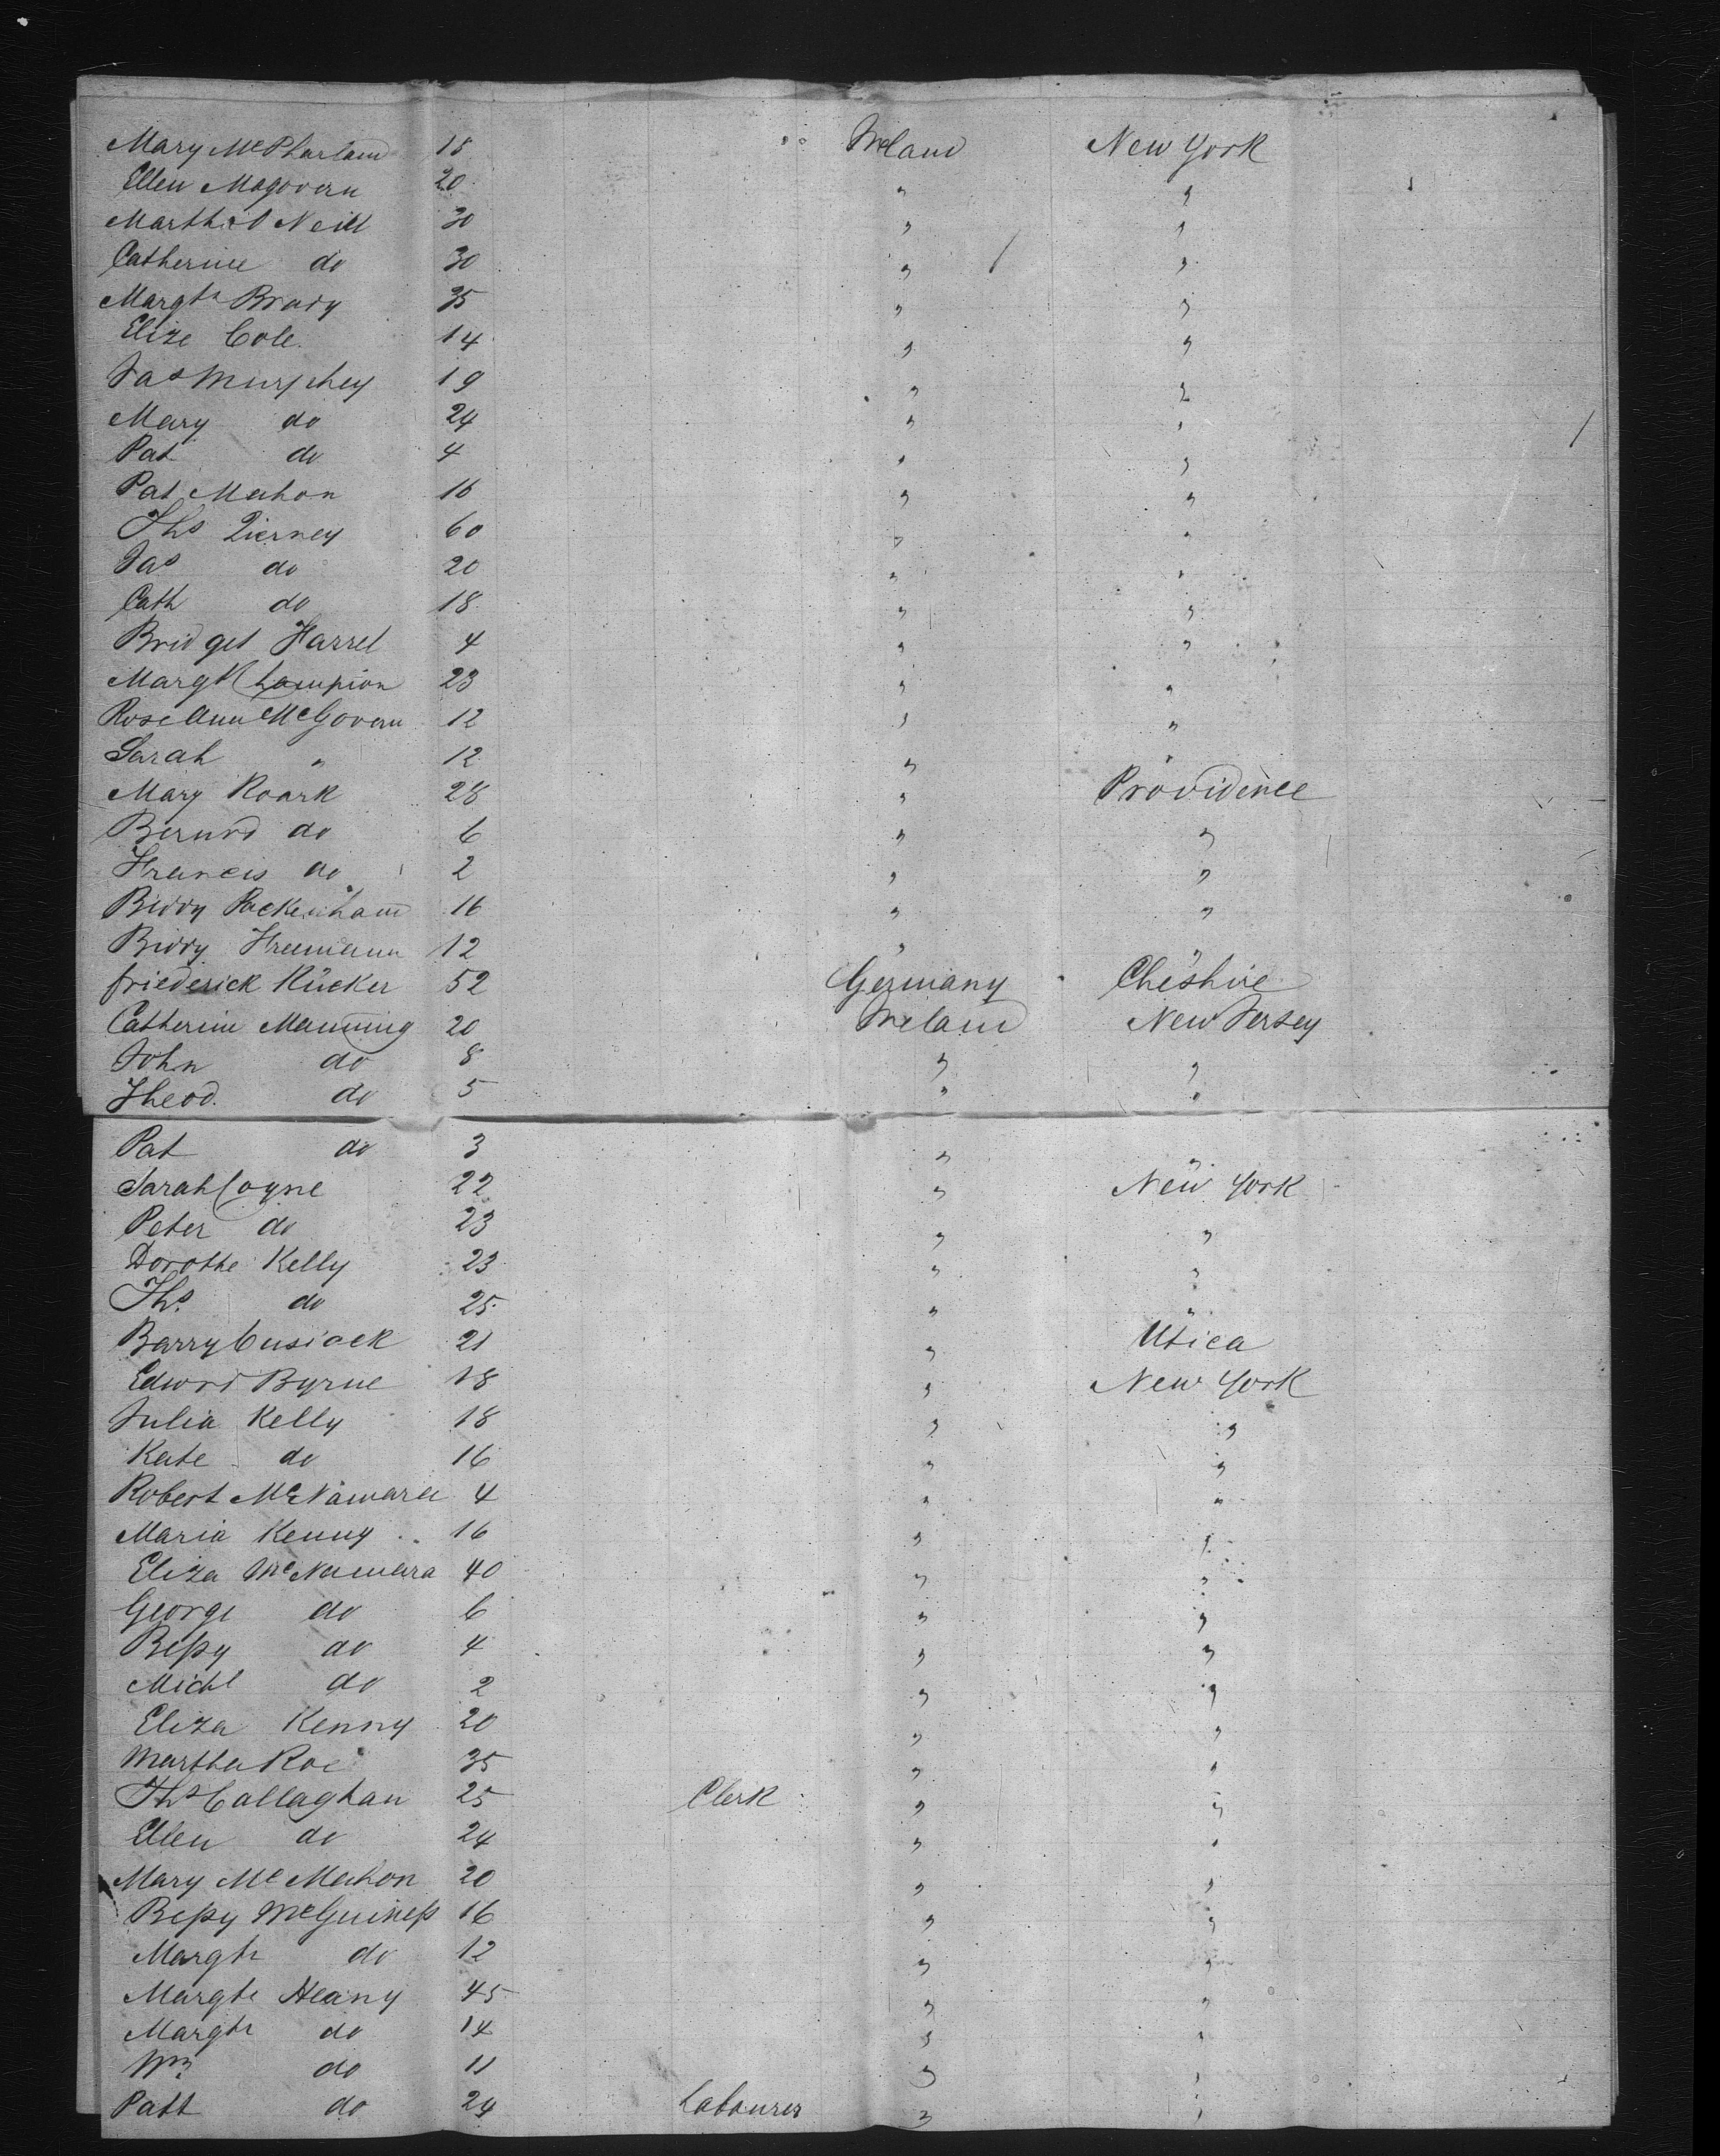 Mary McPharland 18 Ireland New York
Ellen Magovern 20 " "
Martha O Neill 30 " "
Catherine do 30 " "
Margt Brady 35 " "
Elize Cole 14 " "
Jas Murphey 19 " "
Mary do 24 " "
Pat do 4 " "
Pat Mahon 16 " "
Ths Tierney 60 " "
Jas do 20 " "
Cath do 18 " "
Bridget Harrel 4 " "
Margt Champion 23 " "
Rose Ann McGovern 12 " "
Sarah " 12 " "
Mary Roark 28 " Providence
Bernrd do 6 " "
Francis do 2 " "
Biddy Packenham 16 " "
Biddy Freemann 12 " "
friederick Rücker 52 Germany Cheshire
Catherine Manning 20 Ireland New Jersey
John do 8 " "
Theod. do 5 " "
Pat do 3 " "
Sarah Coyne 22 " New York
Peter do 23 " "
Dorothe Kelly 23 " "
Ths do 25 " "
Barry Cusiack 21 " Utica
Edwrd Byrne 18 " New York
Julia Kelly 18 " "
Kate do 16 " "
Robert McNamara 4 " "
Maria Kenny 16 " "
Eliza McNamara 40 " "
George do 6 " "
Bessy do 4 " "
Michl do 2 " "
Eliza Kenny 20 " "
Martha Roe 35 " "
Ths Callaghan 25 Clerk " "
Ellen do 24 " "
Mary McMahon 20 " "
Bessy McGuiness 16 " "
Margt do 12 " "
Margte Heany 45 " "
Margt do 14 " "
Wm do 11 " "
Patt do 24 Labourer " "